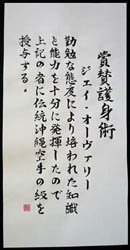 賞賛護身術
ジェイ・オーヴァリー
勤勉な態度により培われた知識
と能力を十分に発揮したので
上記の者に伝統沖縄空手の級を
授与する。